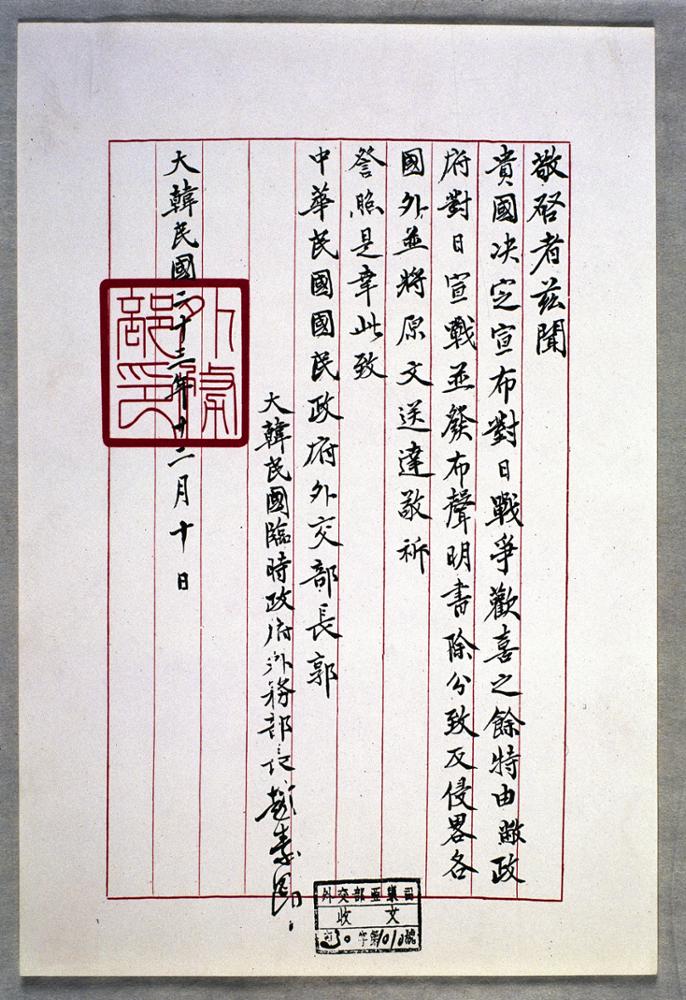 敬啓者茲聞
貴國決定宣布對日戰爭歡喜之餘特由敝政
府對日宣戰並發布聲明書除分致反侵畧各
國外並將原文送達敬祈
詧照是幸此致
中華民國國民政府外交部長郭
大韓民國臨時政府外務部長趙素昂
大韓民國二十三年十二月十日
外務部印
外交部亞東司
收文
字第1010號